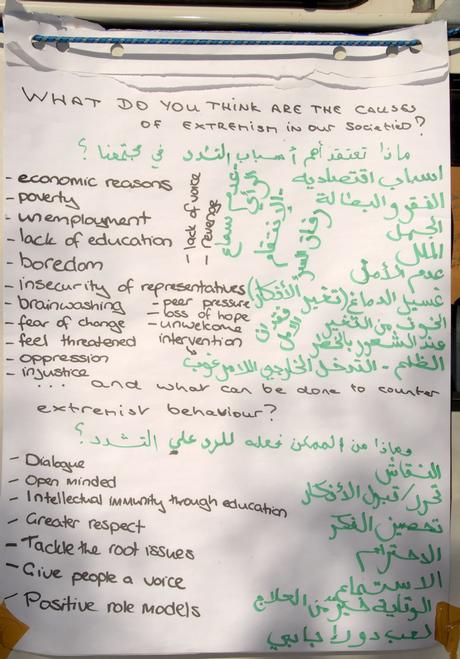 WHAT DO YOU THINK ARE THE CAUSES
OF EXTREMISM IN OUR SOCIETIES?
ماذا تعتقد أهم أسباب التشدد في مجتمعنا؟
- economic reasons
- poverty
- unemployment
- lack of education
- boredom
- insecurity of representatives
- brainwashing
- fear of change
- feel threatened
- oppression
- injustice
- lack of voice
- revenge
- peer pressure
- loss of hope
- unwelcome
intervention
عدم سماع الرأي
- الإنتقام
رفاق السوء
فقدان الأمل
اسباب اقتصادية
الفقر والبطالة
الجهل
الملل
عدم الأمان
غسيل الدماغ (تغيير الأفكار)
الخوف من التغيير
عند الشعور بالخطر
الظلم - التدخل الخارجي اللامرغوب
... and what can be done to counter
extremist behaviour?
وماذا من الممكن فعله للرد علي التشدد؟
- Dialogue
- Open minded
- Intellectual immunity through education
- Greater respect
- Tackle the root issues
- Give people a voice
- Positive role models
النقاش
تحرر/قبول الأفكار
تحصين الفكر
الاحترام
الاستماع
الوقاية خير من العلاج
لعب دور ايجابي